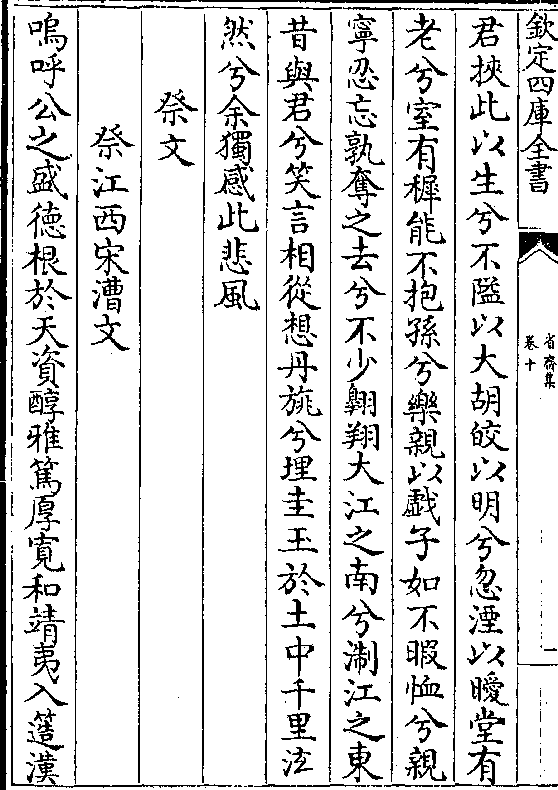 欽定四庫全書
省齋集
卷十
一
君挾此以生兮不隘以大胡皎以明兮忽湮以曖堂有
老兮室有穉能不抱孫兮樂親以戲子如不暇恤兮親
寧忍忘孰奪之去兮不少翺翔大江之南兮淛江之東
昔與君兮笑言相從想丹旐兮埋圭玉於土中千里泫
然兮余獨感此悲風
祭文
祭江西宋漕文
嗚呼公之盛德根於天資醇雅篤厚寛和靖夷入簉漢